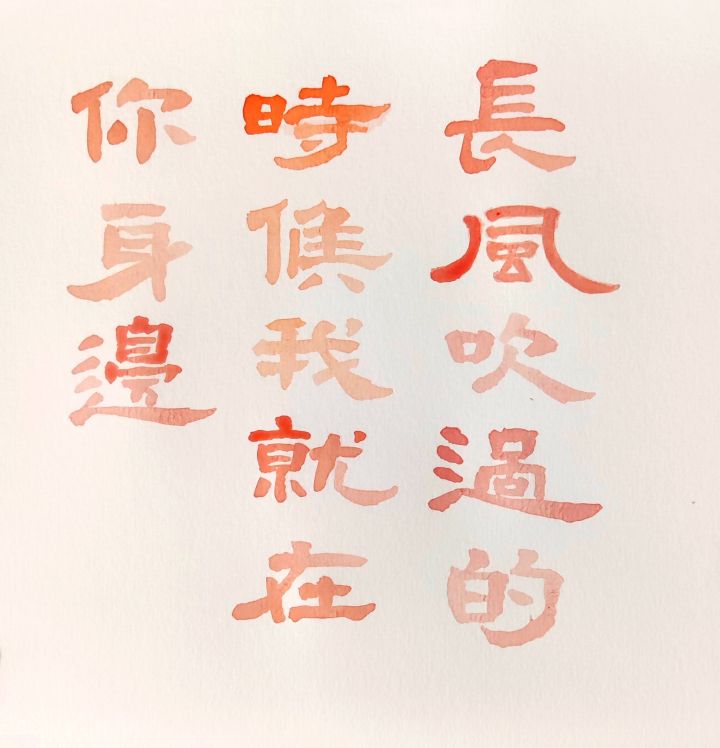 長風吹過的
時候我就在
你身邊